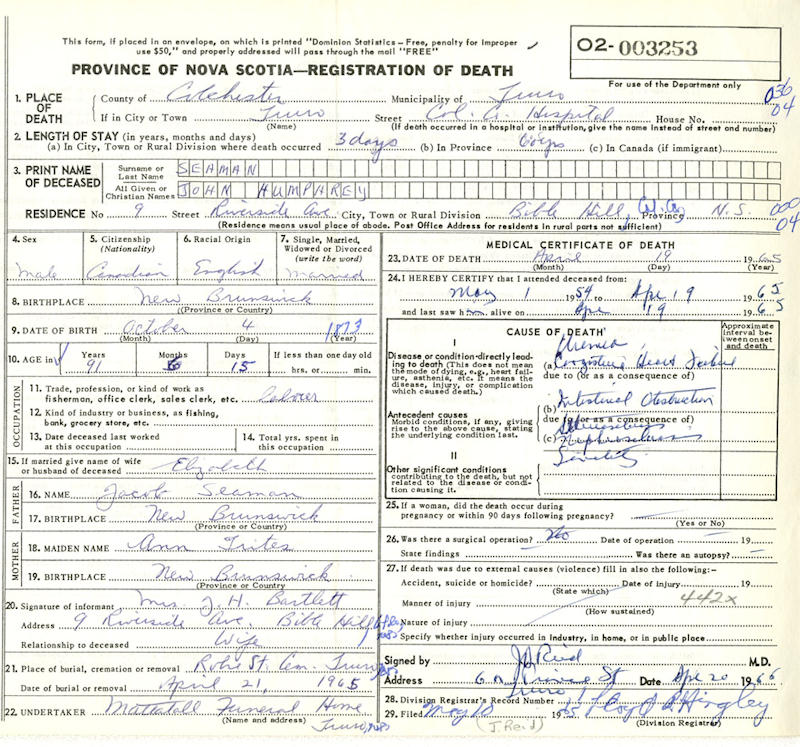 This form, if placed in an envelope, on which is printed "Dominion Statistics – Free, penalty for improper
use $50," and properly addressed will pass through the mail "FREE"
O2- 003253
PROVINCE OF NOVA SCOTIA—REGISTRATION OF DEATH
For use of the Department only
036
04
1. PLACE OF DEATH
County of Colchester Municipality of Truro
If in City or Town Truro Street Col. Co. Hospital House No.
(Name) (If death occurred in a hospital or institution, give the name instead of street and number)
2. LENGTH OF STAY (in years, months and days)
(a) In City, Town or Rural Division where death occurred 3 days (b) In Province (c) In Canada (if immigrant)
3. PRINT NAME OF DECEASED
Surname or Last Name SEAMAN
All Given or Christian Names JOHN HUMPHREY
RESIDENCE No 9 Street Riverside Ave City, Town or Rural Division Bible Hill, Province N.S.
000
04
(Residence means usual place of abode. Post Office Address for residents in rural parts not sufficient)
4. Sex
Male
5. Citizenship (Nationality)
Canadian
6. Racial Origin
English
7. Single, Married, Widowed or Divorced (write the word)
Married
8. BIRTHPLACE New Brunswick
(Province or Country)
9. DATE OF BIRTH October 4 1873
(Month) (Day) (Year)
10. AGE in Years Months Days If less than one day old
91 6 15 hrs. or min.
OCCUPATION
11. Trade, profession, or kind of work as
fisherman, office clerk, sales clerk, etc. Labour
12. Kind of industry or business, as fishing,
bank, grocery store, etc.
13. Date deceased last worked at this occupation
14. Total yrs. spent in this occupation
15. If married give name of wife
or husband of deceased Elizabeth
FATHER
16. NAME Jacob Seaman
17. BIRTHPLACE New Brunswick
(Province or Country)
MOTHER
18. MAIDEN NAME Ann Trites
19. BIRTHPLACE New Brunswick
(Province or Country)
20. Signature of informant Mrs. J. H. Bartlett
Address 9 Riverside Ave. Bible Hill
Relationship to deceased Wife
21. Place of burial, cremation or removal Robie St. Cem. Truro
Date of burial or removal April 21, 1965
22. UNDERTAKER Mattatall Funeral Home
(Name and address) Truro, N.S.
MEDICAL CERTIFICATE OF DEATH
23. DATE OF DEATH April 19 1965
(Month) (Day) (Year)
24. I HEREBY CERTIFY that I attended deceased from:
May 1 1954 to Apr 19 1965
and last saw him alive on Apr 19 1965
CAUSE OF DEATH
Approximate interval between onset and death
I
Disease or condition directly leading to death (This does not mean
the mode of dying, e.g., heart failure, asthenia, etc. It means the
disease, injury, or complication
which caused death.)
Uremia
(a) Congestive Heart Failure
due to (or as a consequence of)
Antecedent causes
Morbid conditions, if any, giving
rise to the above cause, stating
the underlying condition last.
(b) Intestinal Obstruction
due to (or as a consequence of)
(c) Nephrosclerosis
Senility
II
Other significant conditions
contributing to the death, but not
related to the disease or condition causing it.
25. If a woman, did the death occur during
pregnancy or within 90 days following pregnancy?
(Yes or No)
26. Was there a surgical operation? Date of operation 19
State findings Was there an autopsy?
27. If death was due to external causes (violence) fill in also the following:–
Accident, suicide or homicide? Date of injury 19
(State which)
Manner of injury 442x
(How sustained)
Nature of injury
Specify whether injury occurred in industry, in home, or in public place
Signed by J Reid M.D.
Address Prince St Date Apr 20 1965
Truro
28. Division Registrar's Record Number
29. Filed May 10 1965 Lloyd Hingley
(J. Reid) (Division Registrar)